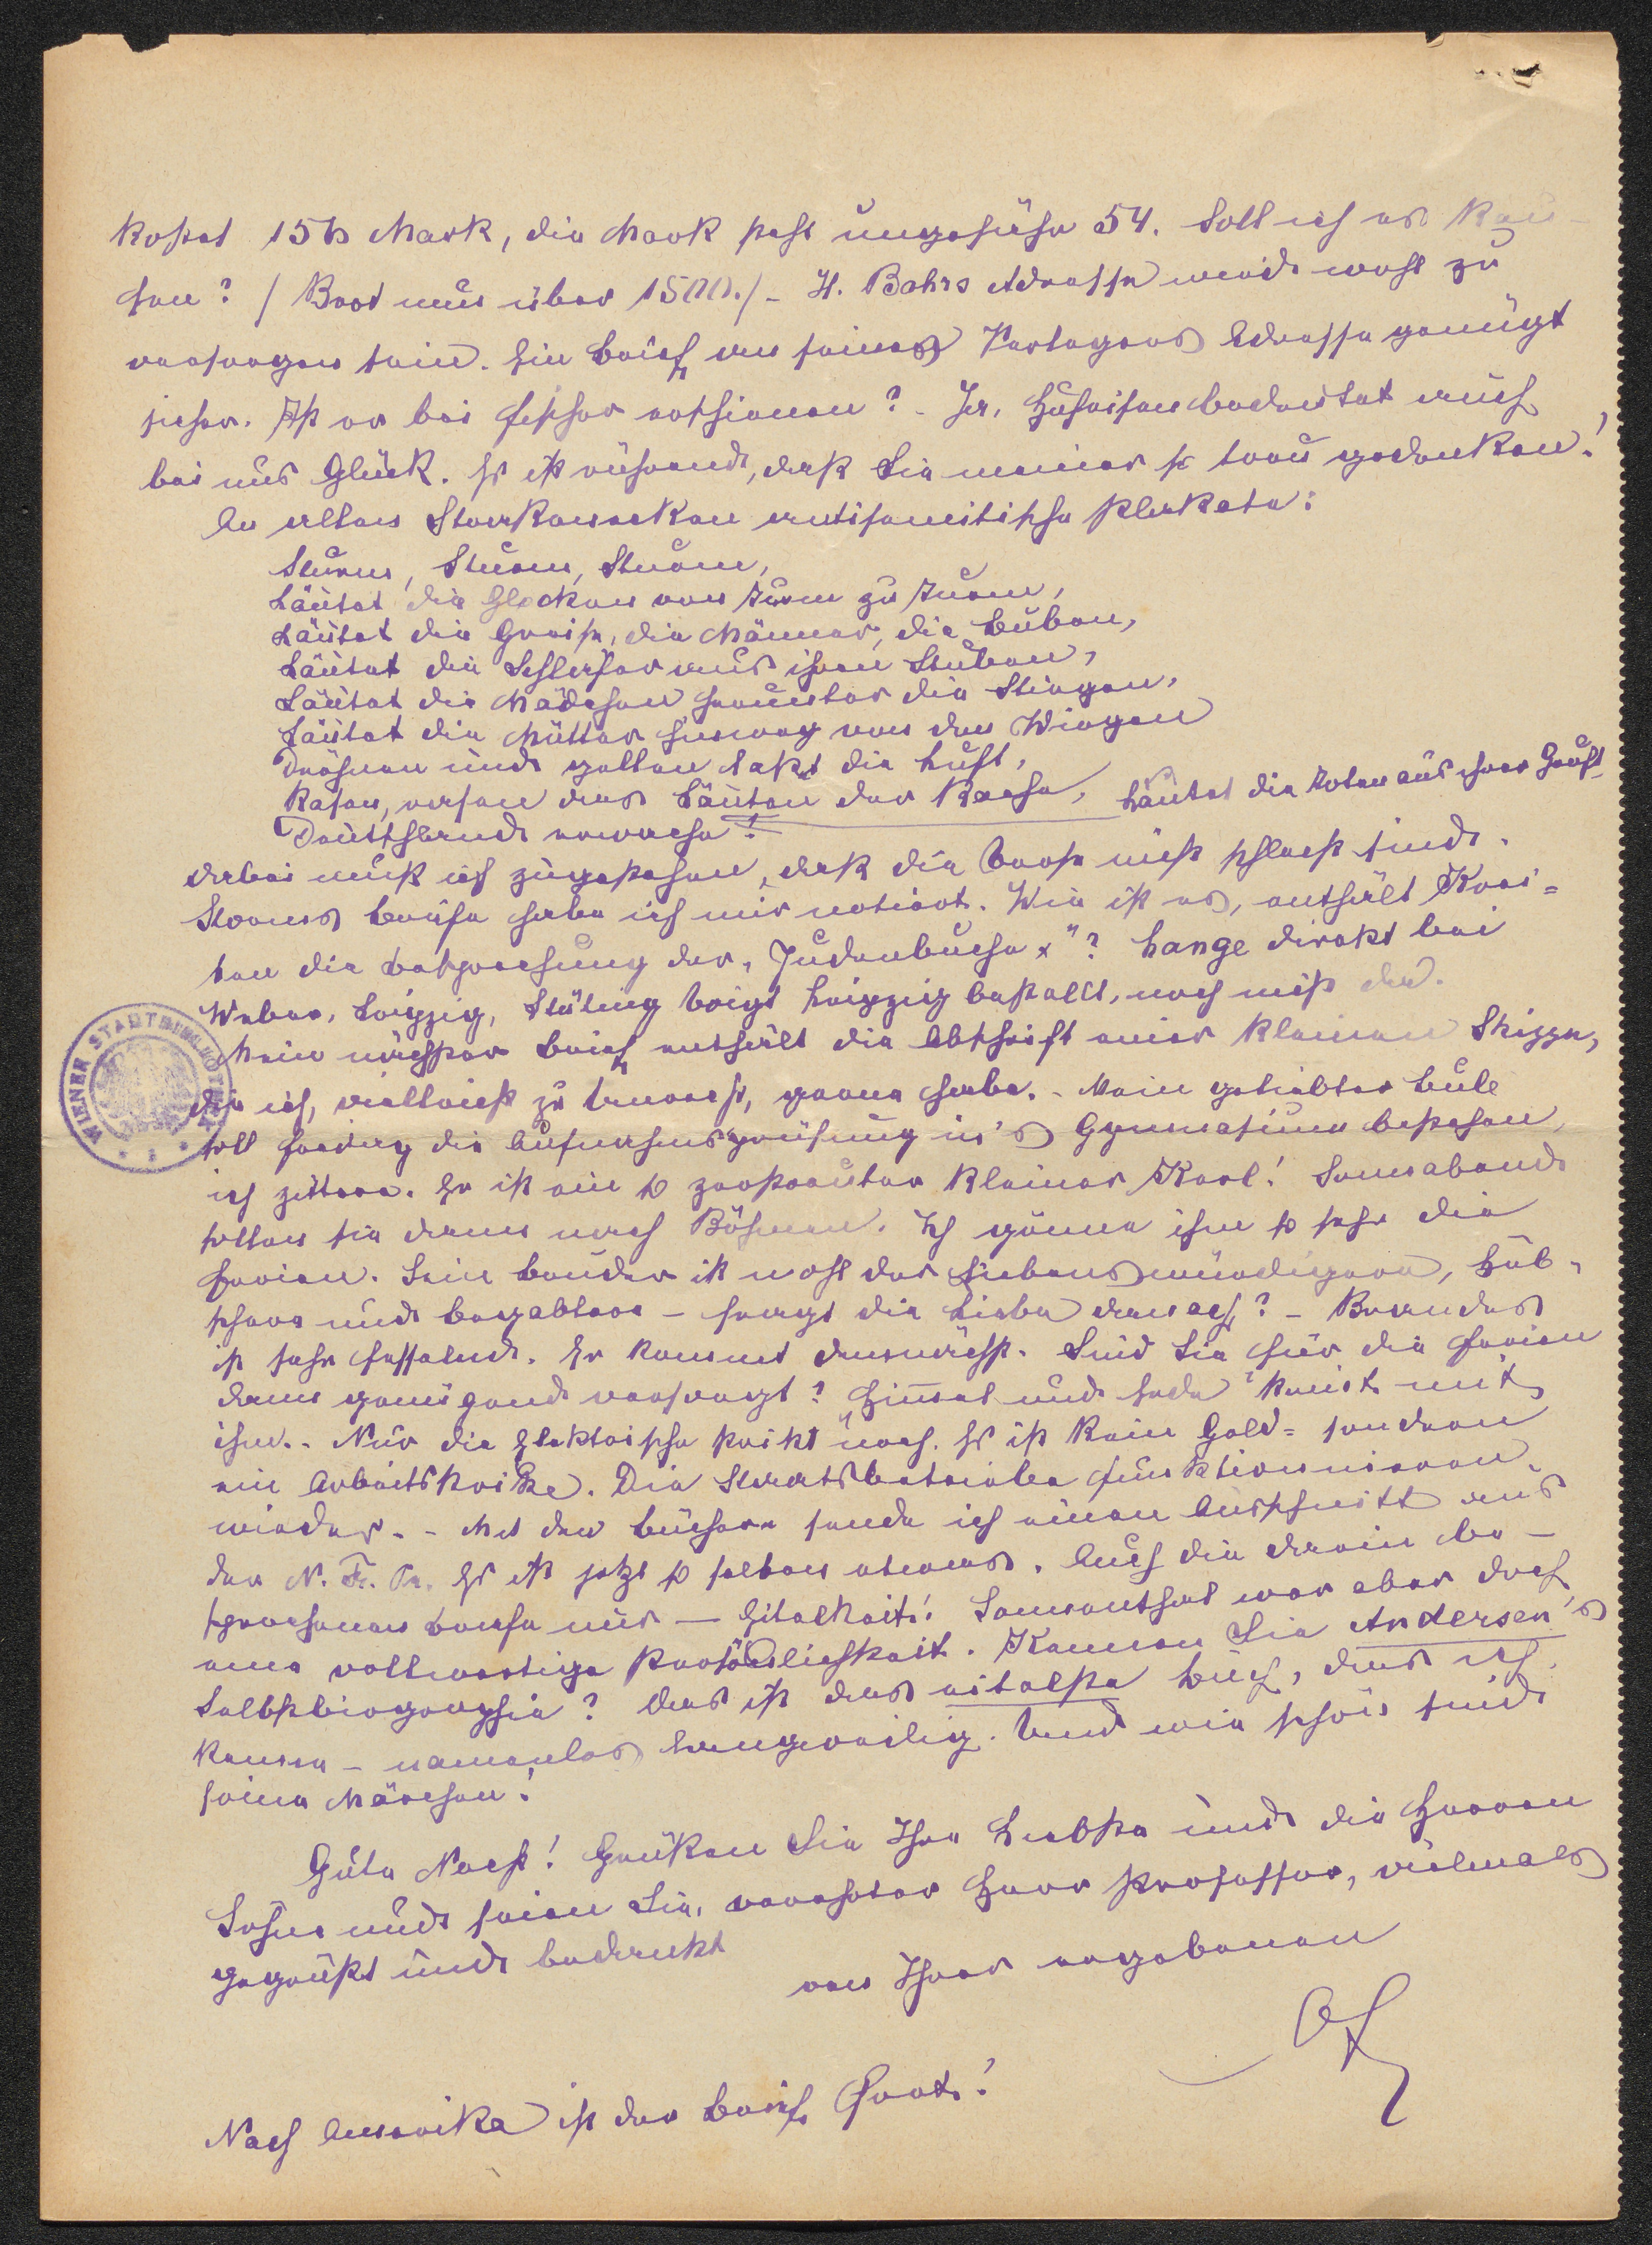 kostet 156 Mark, die Mark steht ungefähr 54. Soll ich es kau-
fen? / Brot nur über 1500./ - H. Bahrs Adresse wird wohl zu
erfragen sein. Ein Brief an seines Verlegers Adresse genügt
sicher. Ist er bei Fischer erschienen? - Ja, Hufeisen bedeutet auch
bei uns Glück. Es ist rührend, daß Sie meiner so treu gedenken!
An allen Straßenecken antisemitische Plakate:
Sturm, Sturm, Sturm,
Läutet die Glocken von Turm zu Turm,
Läutet die Greise, die Männer, die Buben,
Läutet die Schläfer aus ihren Stuben,
Läutet die Mädchen herunter die Stiegen,
Läutet die Mütter hinweg von den Wiegen
Dröhnen und gellen laßt die Luft,
Rasen, rasen das Läuten der Rache, Läutet die Toten aus ihrer Gruft
Deutschland erwache!
Dabei muß ich zugestehen, daß die Verse nicht schlecht sind.
Storms Briefe habe ich mir notiert. Wie ist es, enthält Krei-
ten die Besprechung der „Judenbuche"? Lange direkt bei
Weber, Leipzig, Leipzig bestellt, noch nicht da.
Mein nächster Brief enthält die Abschrift einer kleinen Skizze,
die ich, vielleicht zu Unrecht, gerne habe. - Mein geliebter Bub
soll Freitag die Aufnahmsprüfung in's Gymnasium bestehen,
ich zittere. Er ist ein so zerstreuter kleiner Kerl! Sonnabend
sollen sie dann nach Böhmen. Ich gönne ihm so sehr die
Ferien. Sein Bruder ist wohl der Liebenswürdigere, Hüb-
schere und Begabtere - fragt die Liebe danach? - Brandes
ist sehr fesselnd. Er kommt demnächst. Sind Sie für die Ferien
dann genügend versorgt? Himmel und Erde streikt mit
ihm. - Nur die Elektrische streikt noch. Es ist kein Geld- sondern
ein Arbeitsstreike. Die Staatsbetriebe funktionnieren
wieder. - Mit den Büchern sende ich einen Ausschnitt aus
der N. Fr. Pr. Es ist jetzt so selten etwas. Auch die darin be-
sprochenen Briefe nur — Eitelkeit! Sonnenthal war aber doch
eine vollwertige Persönlichkeit. Kennen Sie Andersen's
Selbstbiographie? Das ist das eitelste Buch, das ich
kenne - namenlos langweilig. Und wie schön sind
seine Märchen!
Gute Nacht! Grüßen Sie Ihre Liebste und die Herren
Söhne und seien Sie, verehrter Herr Professor, vielmals
gegrüßt und bedankt
von Ihrer ergebenen
Nach Amerika ist der Brief fort!
WIENER STADTBIBLIOTHEK